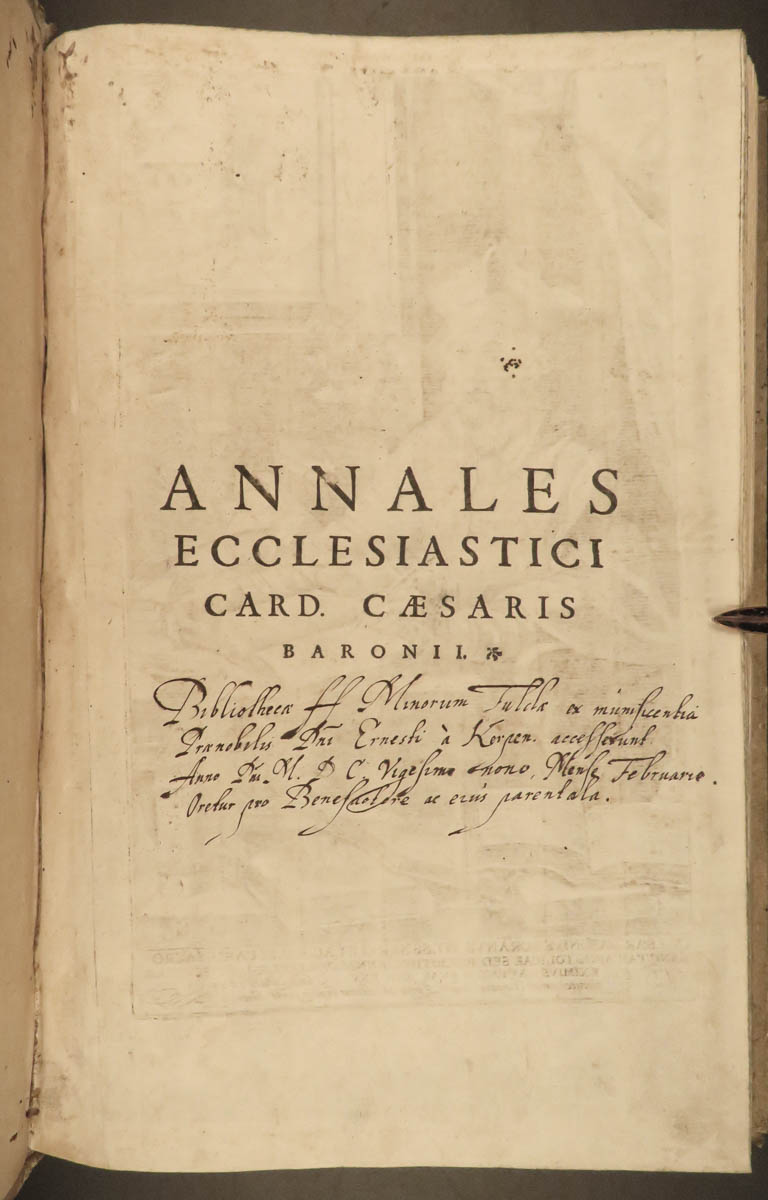 ANNALES
ECCLESIASTICI
CARD. CÆSARIS
BARONII.
Bibliothecæ ff Minorum Fuldæ ex munificentia
Prænobilis Dni Ernesti à Kerpen. accesserunt
Anno Dni. M. D C. Vigesimo nono, Mense Februario.
Oretur pro Benefactore ac eius parentala.